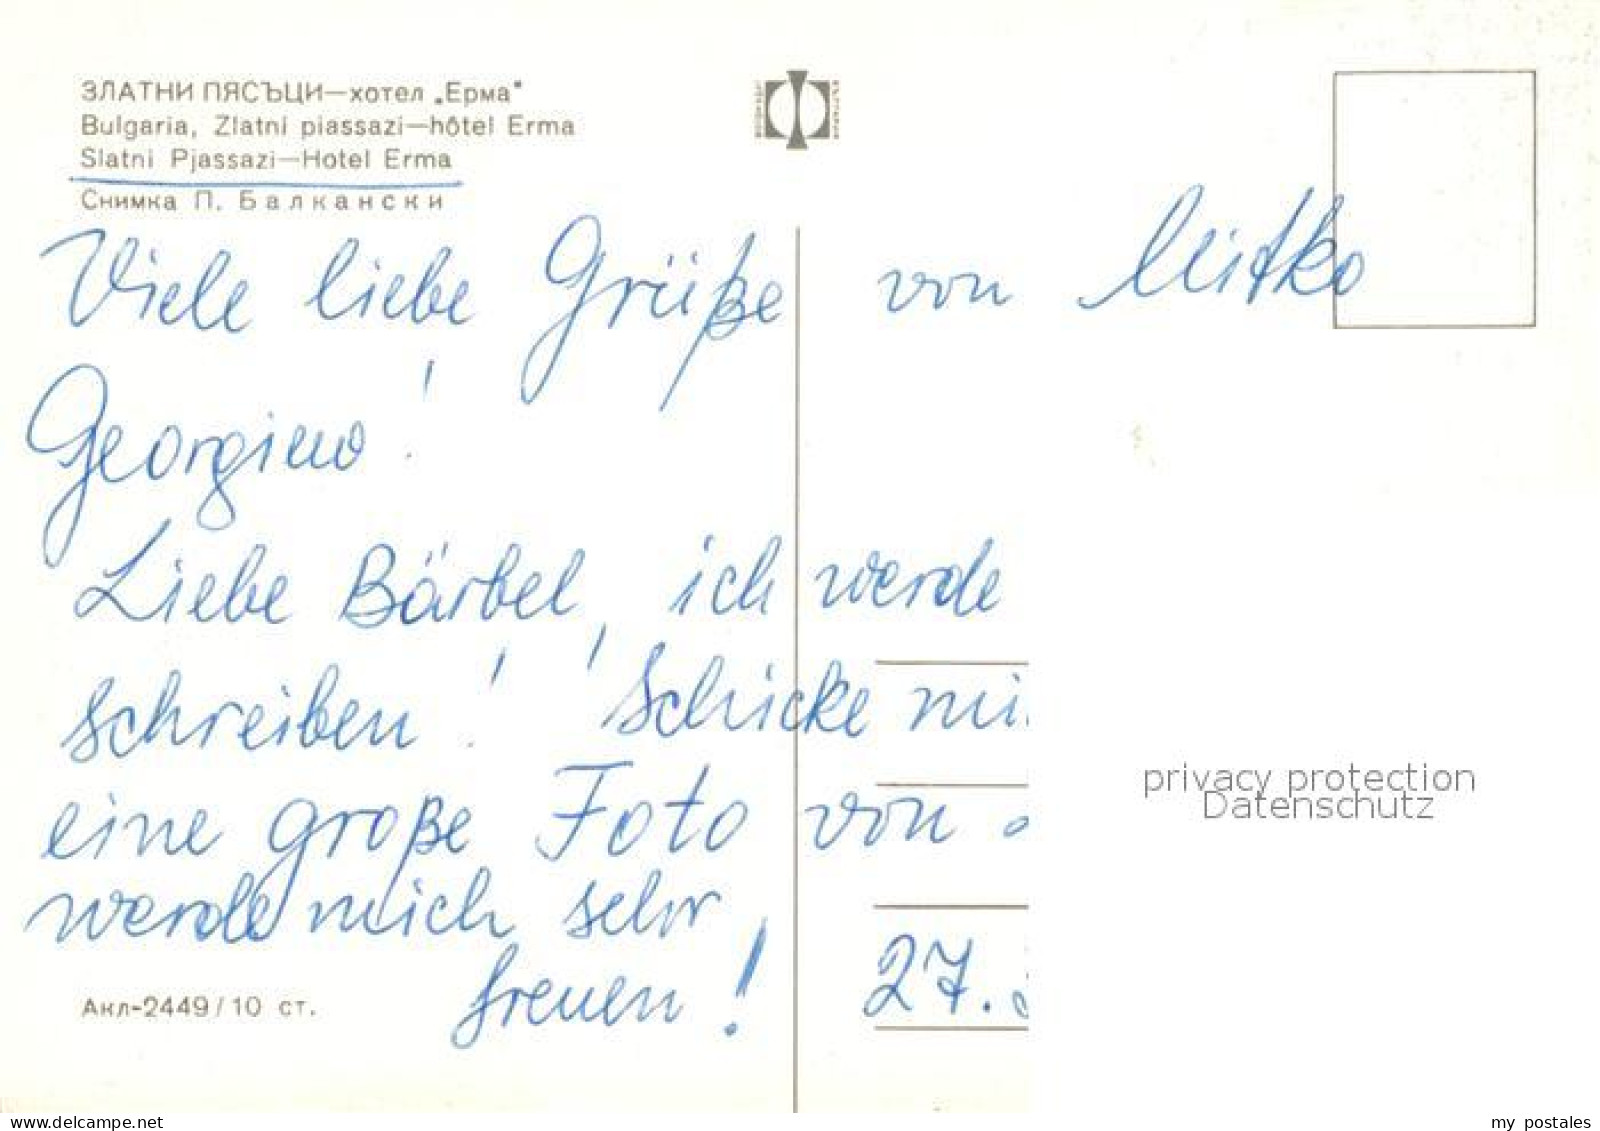 ЗЛАТНИ ПЯСЪЦИ—хотел „Ерма"
Bulgaria, Zlatni piassazi—hôtel Erma
Slatni Pjassazi—Hotel Erma
Снимка П. Балкански
Viele liebe Grüße von Mitko
Georgiew!
Liebe Bärbel, ich werde
schreiben! Schicke
eine große Foto von
werde mich sehr
freuen!
27.
Акл-2449/10 ст.
privacy protection
Datenschutz
delcampe.net
my_postales